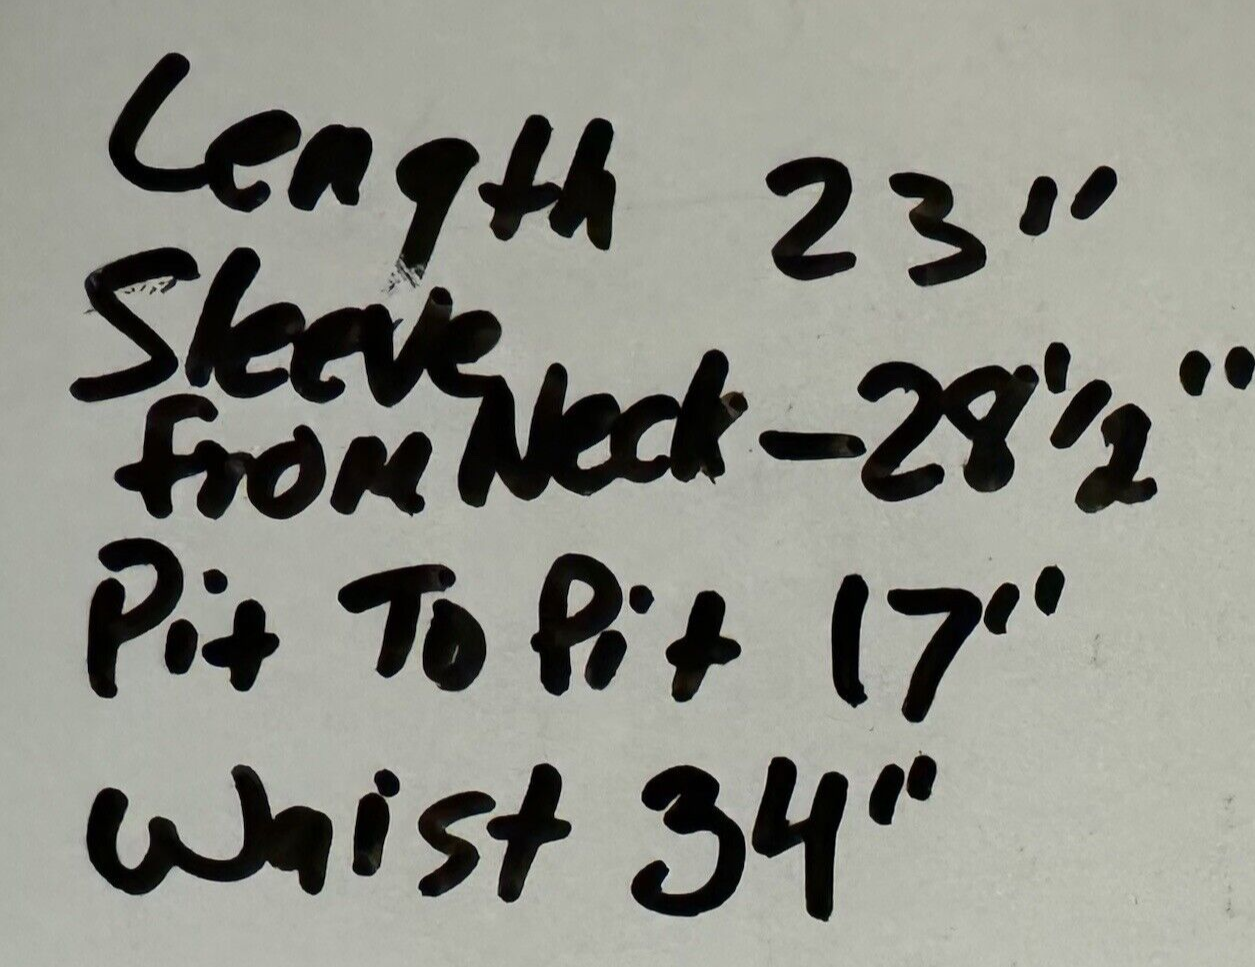 Length 23"
Sleeve
from Neck - 28 1/2"
Pit To Pit 17"
Waist 34"